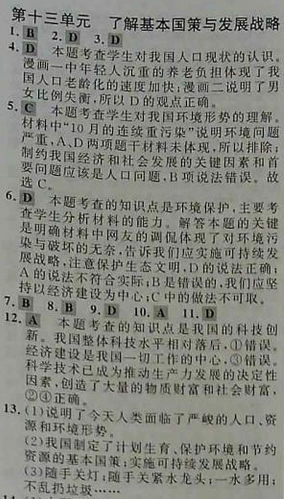 第十三单元 了解基本国策与发展战略
1. B 2. D 3. D
4. D 本题考查学生对我国人口现状的认识。
漫画一中年轻人沉重的养老负担体现了我
国人口老龄化的速度加快;漫画二说明了男
女比例失衡,所以 D 的观点正确。
5. C 本题考查学生对我国环境形势的理解。
材料中“10 月的连续重污染”说明环境问题
严重,A、D 两项题干材料未体现,所以排除;
制约我国经济和社会发展的关键因素和首
要问题应该是人口问题,B 项说法错误。故
选 C。
6. D 本题考查的知识点是环境保护,主要考
查学生分析材料的能力。解答本题的关键
是明确材料中网友的调侃体现了对环境污
染与破坏的无奈,告诉我们应实施可持续发
展战略,注意保护生态文明,D 的说法正确;
A 的说法不符合实际;B 是错误的,我们应坚
持以经济建设为中心;C 中的做法不可取。
7. B 8. B 9. D 10. A 11. D
12. A 本题考查的知识点是我国的科技创
新。我国整体科技水平相对落后,①错误。
经济建设是我国一切工作的中心,③错误。
科学技术已成为推动生产力发展的决定性
因素,创造了大量的物质财富和社会财富,
②④正确。
13. (1)说明了今天人类面临了严峻的人口、资
源和环境形势。
(2)我国制定了计划生育、保护环境和节约
资源的基本国策;实施可持续发展战略。
(3)随手关灯;随手关紧水龙头;一水多用;
不乱扔垃圾……